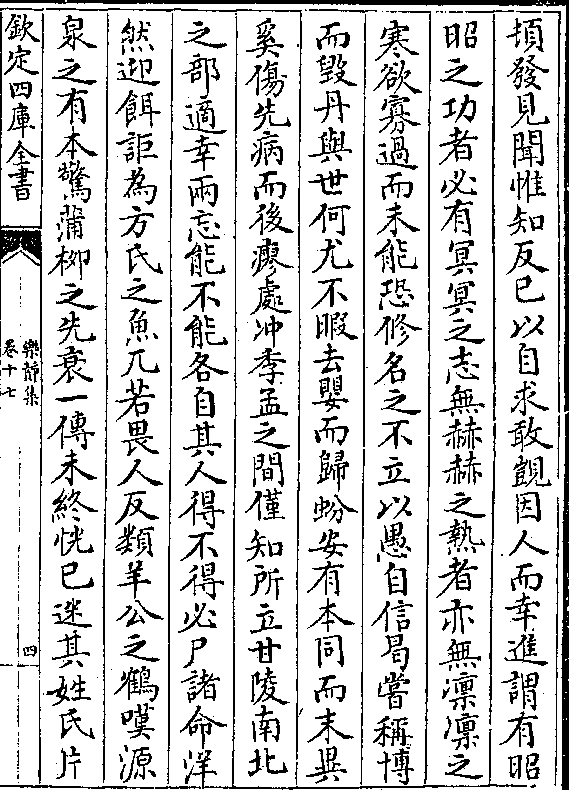 頃發見聞惟知反已以自求敢覬因人而幸進謂有昭
昭之功者必有冥冥之志無赫赫之熱者亦無凛凛之
寒欲寡過而未能恐修名之不立以愚自信曷嘗稱博
而毀丹與世何尤不暇去嬰而歸蚡安有本同而末異
奚傷先病而後瘳處冲季孟之間僅知所立甘陵南北
之部適幸兩忘能不能各自其人得不得必尸諸命洋
然迎餌詎為方氏之魚兀若畏人反類羊公之鶴嘆源
泉之有本驚蒲柳之先衰一傳未終恍已迷其姓氏片
欽定四庫全書
樂靜集
卷十七
四